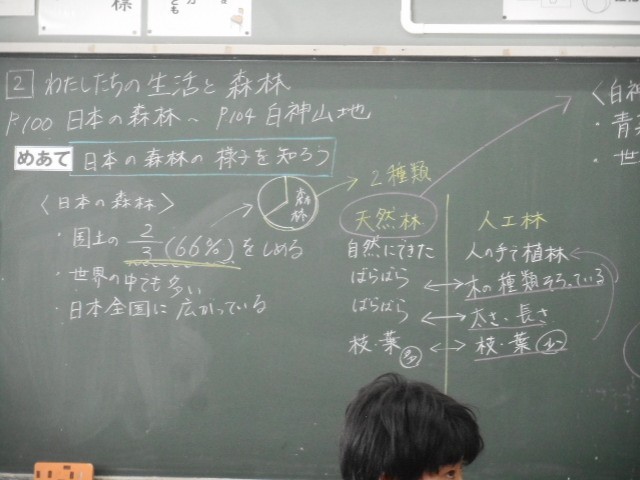 標
2 わたしたちの生活と森林
P.100 日本の森林～ P104 白神山地
めあて 日本の森林の様子を知ろう
〈日本の森林〉
・国土の 2/3 (66%) をしめる
・世界の中でも多い
・日本全国に広がっている
森林
2種類
天然林
自然にできた
ばらばら
ばらばら
枝・葉 多
人工林
人の手で植林
木の種類そろっている
太さ・長さ
枝・葉 少
〈白神
・青
・世